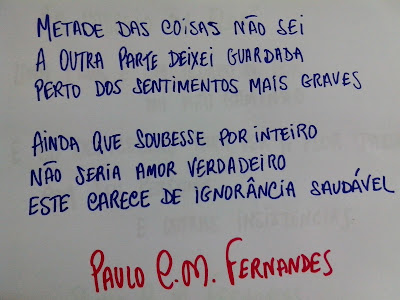 METADE DAS COISAS NÃO SEI
A OUTRA PARTE DEIXEI GUARDADA
PERTO DOS SENTIMENTOS MAIS GRAVES
AINDA QUE SOUBESSE POR INTEIRO
NÃO SERIA AMOR VERDADEIRO
ESTE CARECE DE IGNORÂNCIA SAUDÁVEL
PAULO C.M. FERNANDES